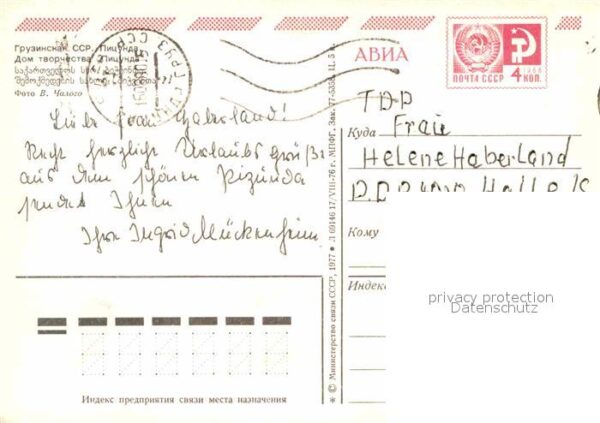 Грузинская ССР. Пицунда
Дом творчества "Пицунда"
საქართველოს სსრ.
შემოქმედების სახლი
Фото В. Чалого
АВИА
ПОЧТА СССР
1966
4 КОП.
Liebe Frau Haberland!
Recht herzliche Urlaubsgrüße
aus dem schönen Pizunda
sendet Ihnen
Ihre Ingrid Mückenheim
ГДР
Куда Frau
Helene Haberland
Кому
Индекс
privacy protection
Datenschutz
Индекс предприятия связи места назначения
* © Министерство связи СССР, 1977 ● Л 09146 17/VIII-76 г. МПФГ. Зак. 77-5358. Ц. 5 к.